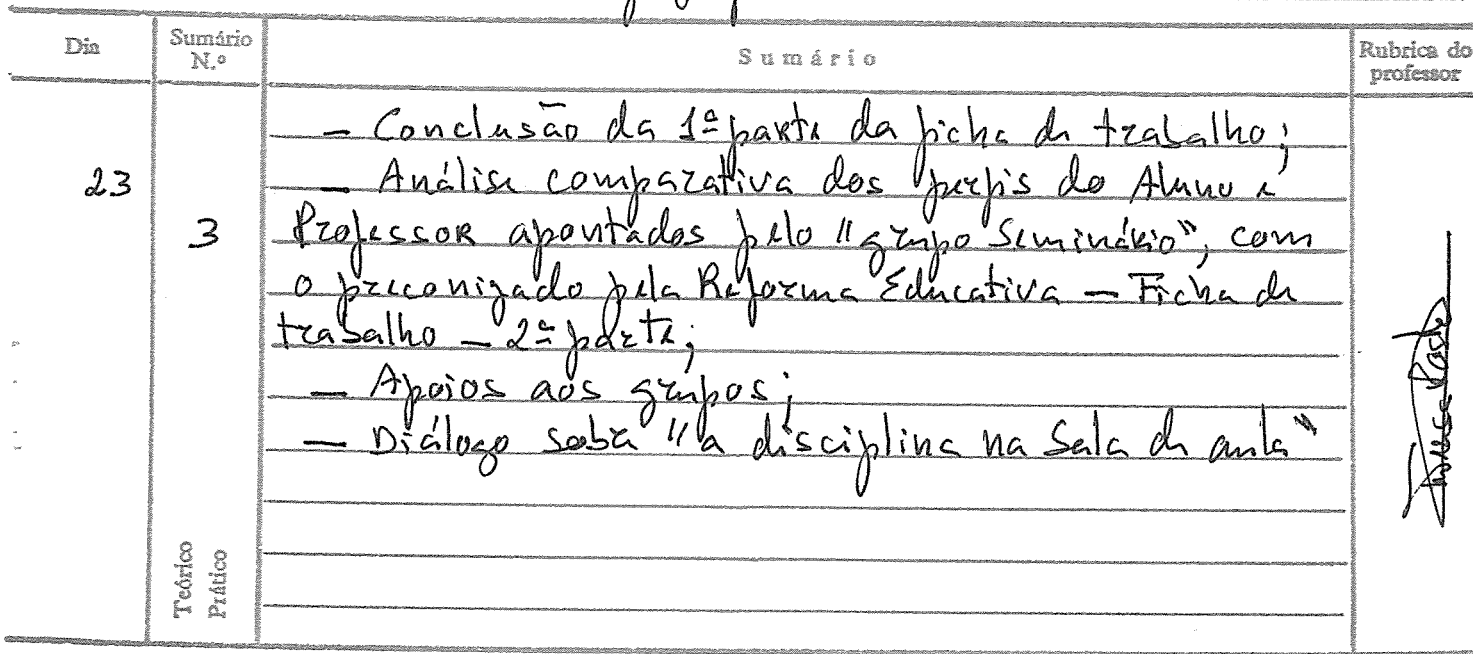 Dia
Sumário N.º
Sumário
Rubrica do professor
— Conclusão da 1ª parte da ficha de trabalho;
23
— Análise comparativa dos perfis do Aluno e
3
Professor apontados pelo "grupo Seminário", com
o preconizado pela Reforma Educativa — Ficha de
trabalho — 2ª parte;
— Apoios aos grupos;
— Diálogo sobre "a disciplina na Sala de aula"
Teórico
Prático